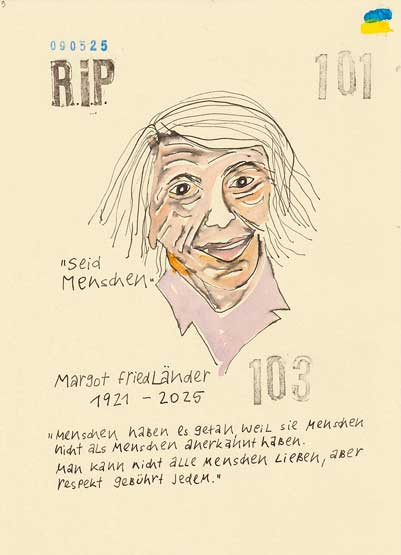 090525
R.i.P
101
"seid
Menschen"
Margot friedLänder
1921 - 2025
103
"Menschen haben es getan, weil sie Menschen
nicht als Menschen anerkannt haben.
Man kann nicht alle Menschen Lieben, aber
respekt gebührt jedem."